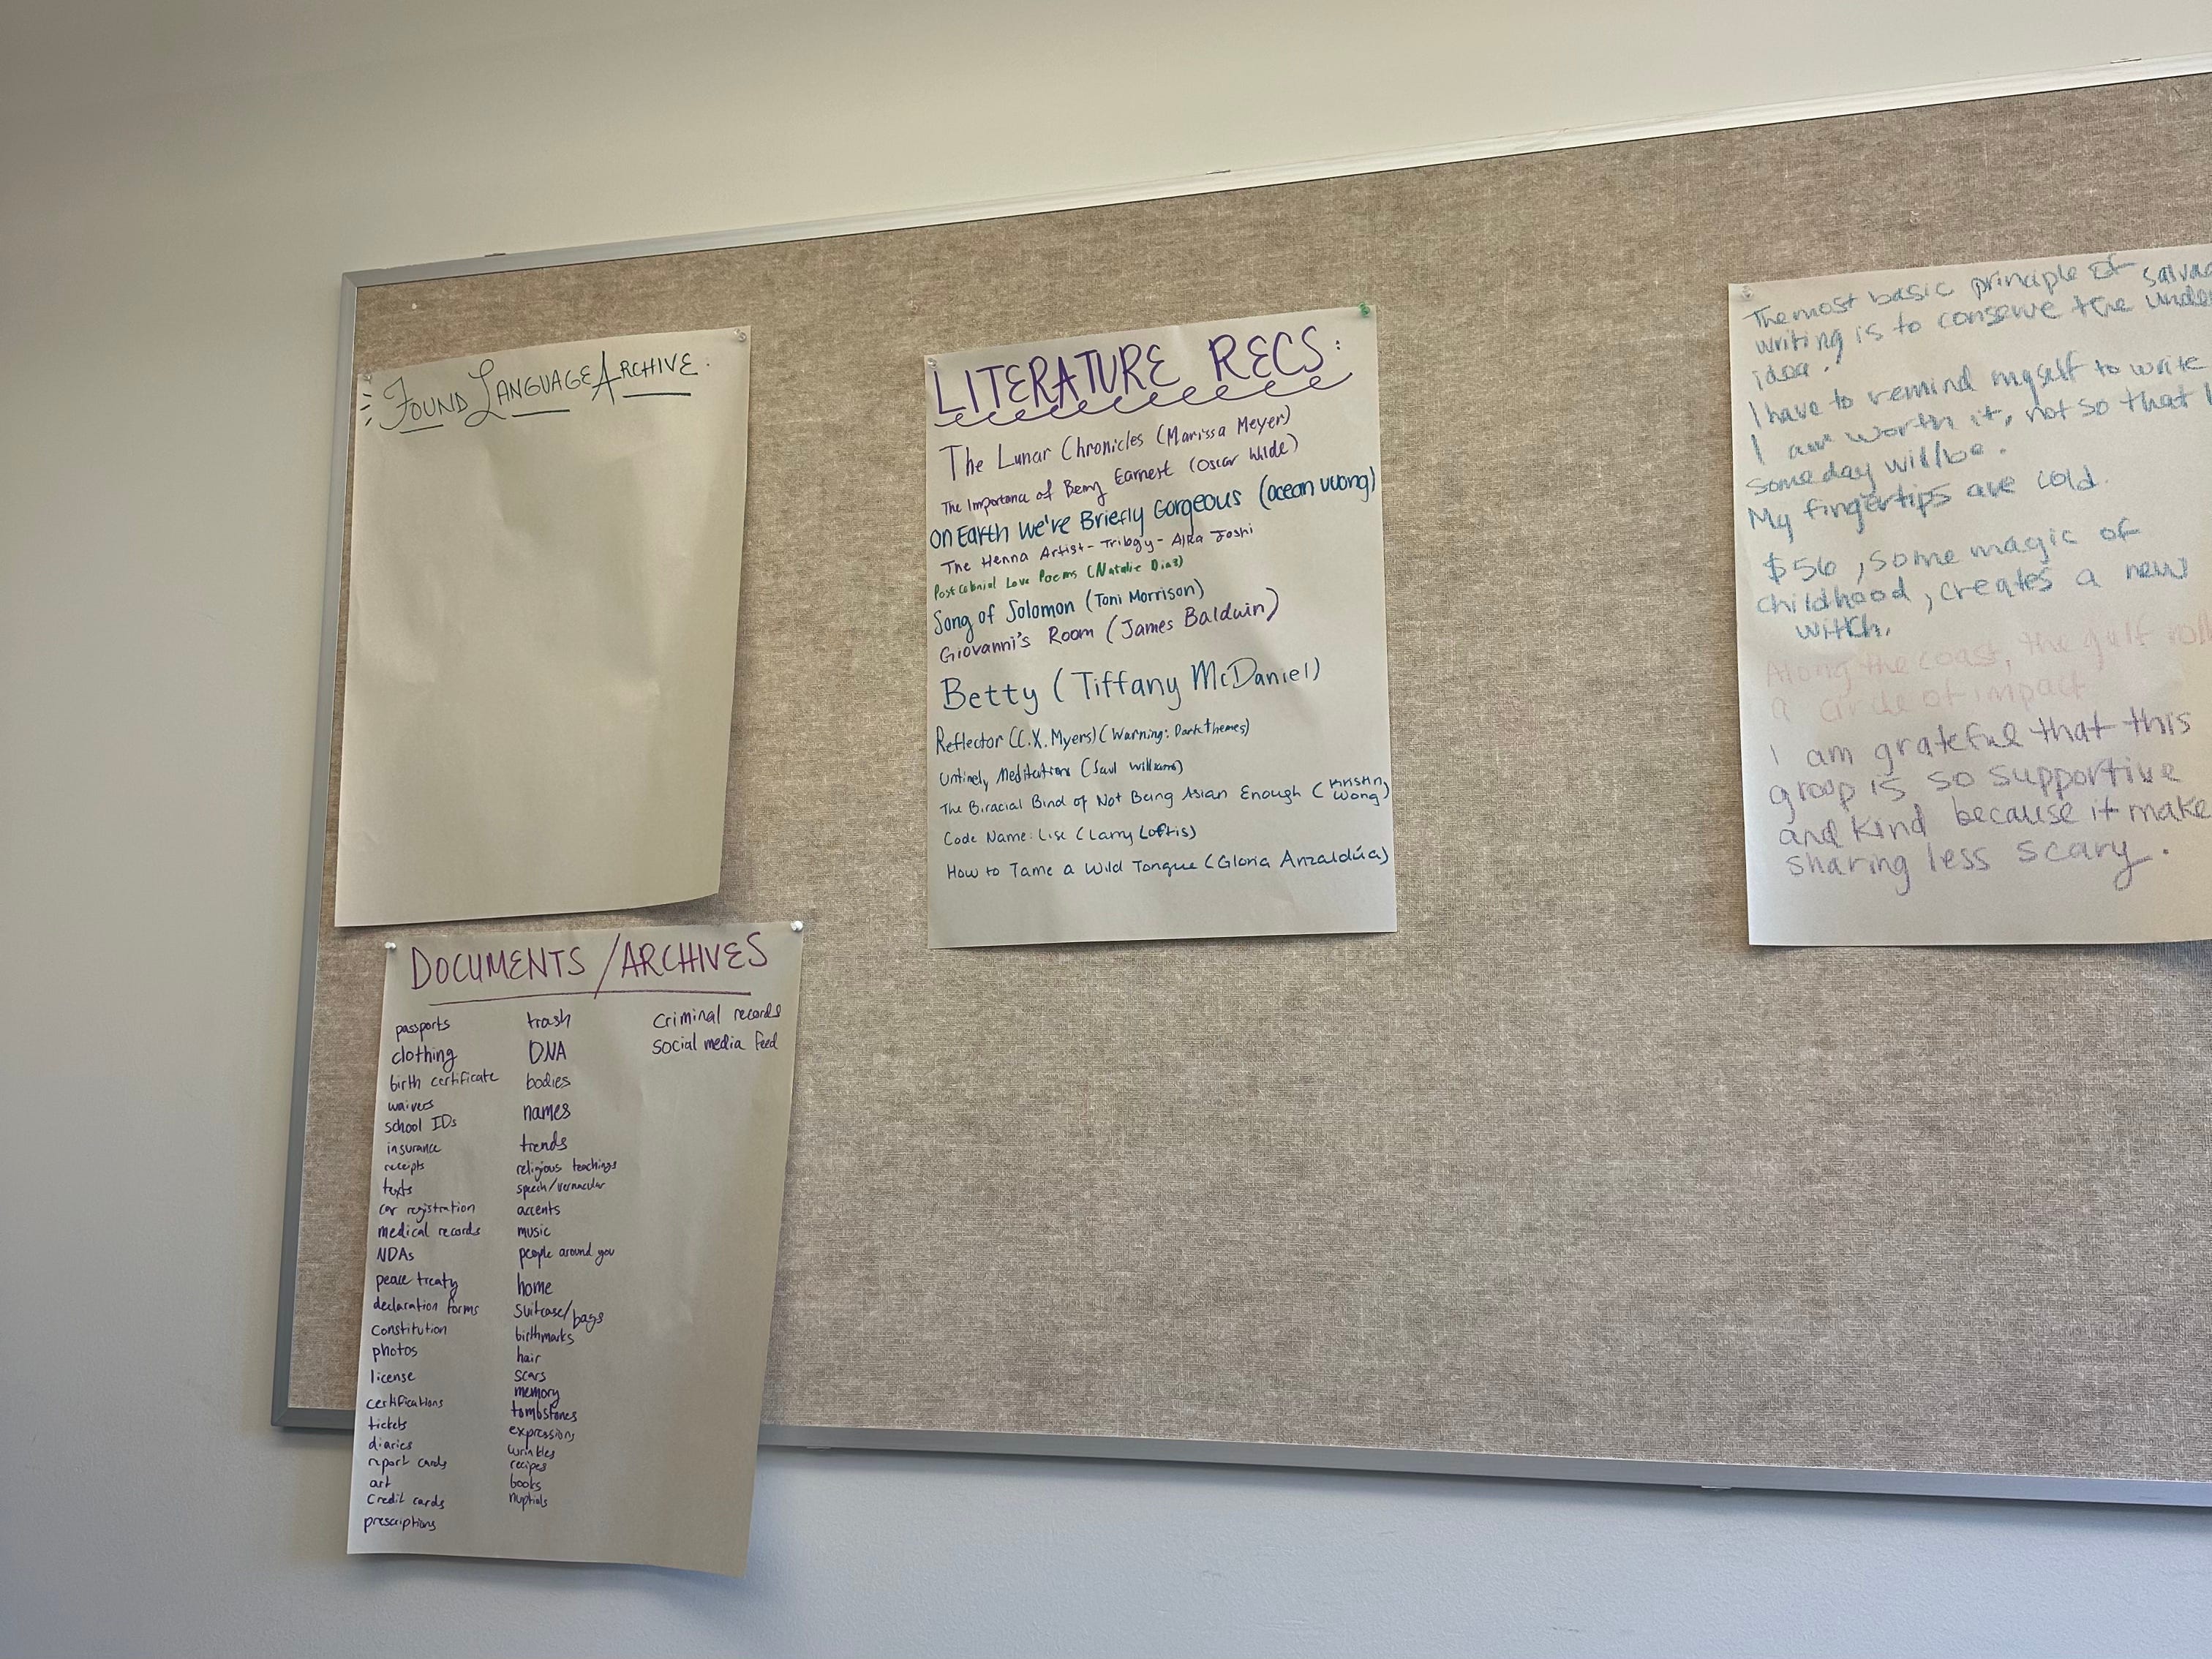 FOUND LANGUAGE ARCHIVE.
LITERATURE RECS:
The Lunar Chronicles (Marissa Meyer)
The Importance of Being Earnest (Oscar Wilde)
On Earth We're Briefly Gorgeous (ocean vuong)
The Henna Artist - Trilogy - Alka Joshi
Postcolonial Love Poems (Natalie Diaz)
Song of Solomon (Toni Morrison)
Giovanni's Room (James Baldwin)
Betty (Tiffany McDaniel)
Reflector (C.X. Myers) (Warning: Dark themes)
Untimely Meditations (Saul Williams)
The Biracial Bind of Not Being Asian Enough (Kristin Wong)
Code Name: Lise (Larry Loftis)
How to Tame a Wild Tongue (Gloria Anzaldúa)
The most basic principle of
writing is to conserve the
idea.
I have to remind myself to write
I am worth it, not so that I
someday will be.
My fingertips are cold.
$56, some magic of
childhood, creates a new
witch.
Along the coast, the gulf
a circle of impact
I am grateful that this
group is so supportive
and kind because it make
sharing less scary.
DOCUMENTS / ARCHIVES
passports
clothing
birth certificate
waivers
school IDs
insurance
receipts
texts
car registration
medical records
NDAs
peace treaty
declaration forms
constitution
photos
license
certifications
tickets
diaries
report cards
art
credit cards
prescriptions
trash
DNA
bodies
names
trends
religious teachings
speech/vernacular
accents
music
people around you
home
suitcase/bags
birthmarks
hair
scars
memory
tombstones
expressions
wrinkles
recipes
books
nuptials
criminal records
social media feed